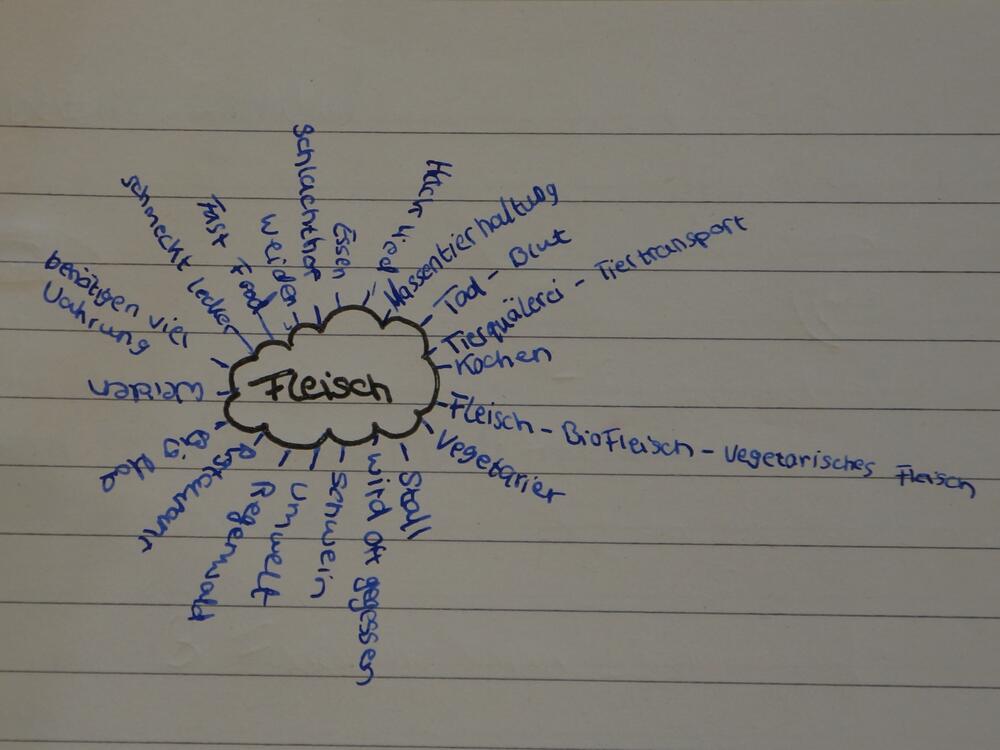 Fleisch
Essen
Massentierhaltung
Tod - Blut
Tierquälerei - Tiertransport
Kochen
Fleisch - BioFleisch - Vegetarisches Fleisch
Vegetarier
Stall
wird oft gegessen
Schwein
Umwelt
Regenwald
weiden
benötigen viel
Nahrung
schmeckt lecker
Fast Food
weiden
Schlachthof